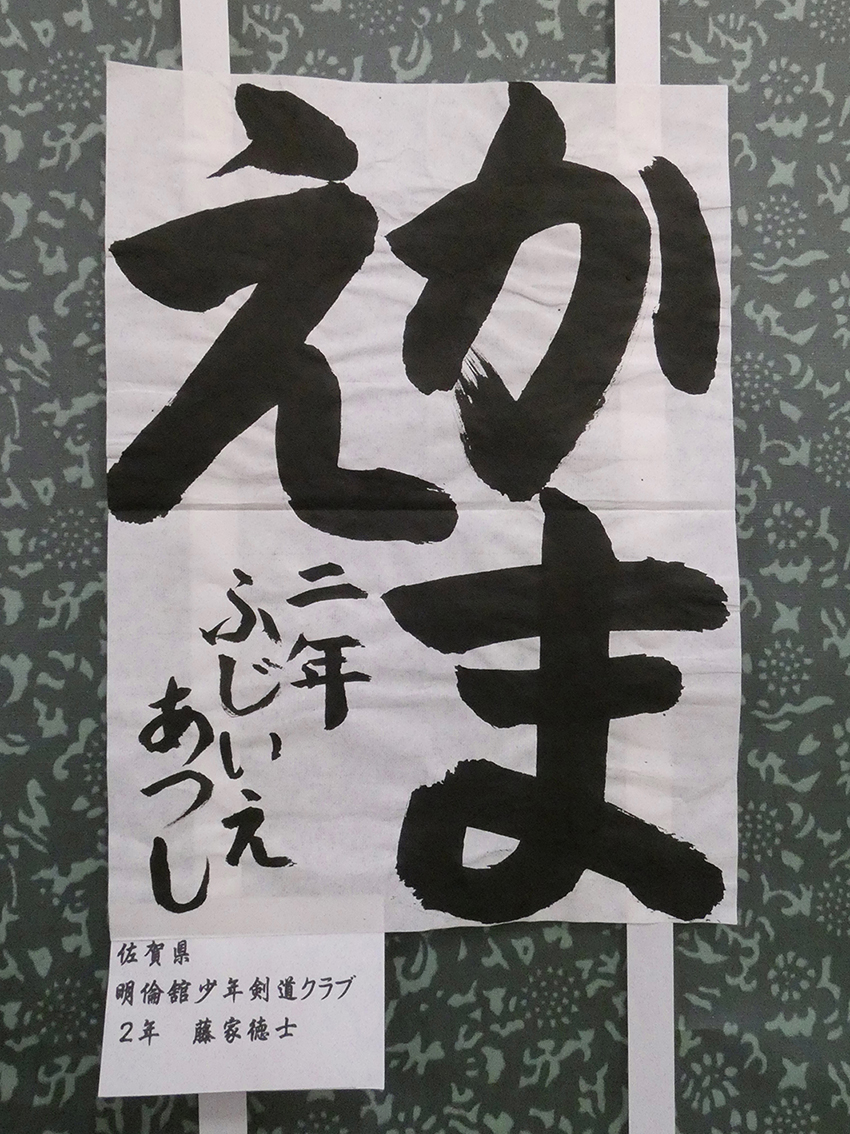 かま
え
二年
ふじいえ
あつし
佐賀県
明倫舘少年剣道クラブ
2年　藤家徳士